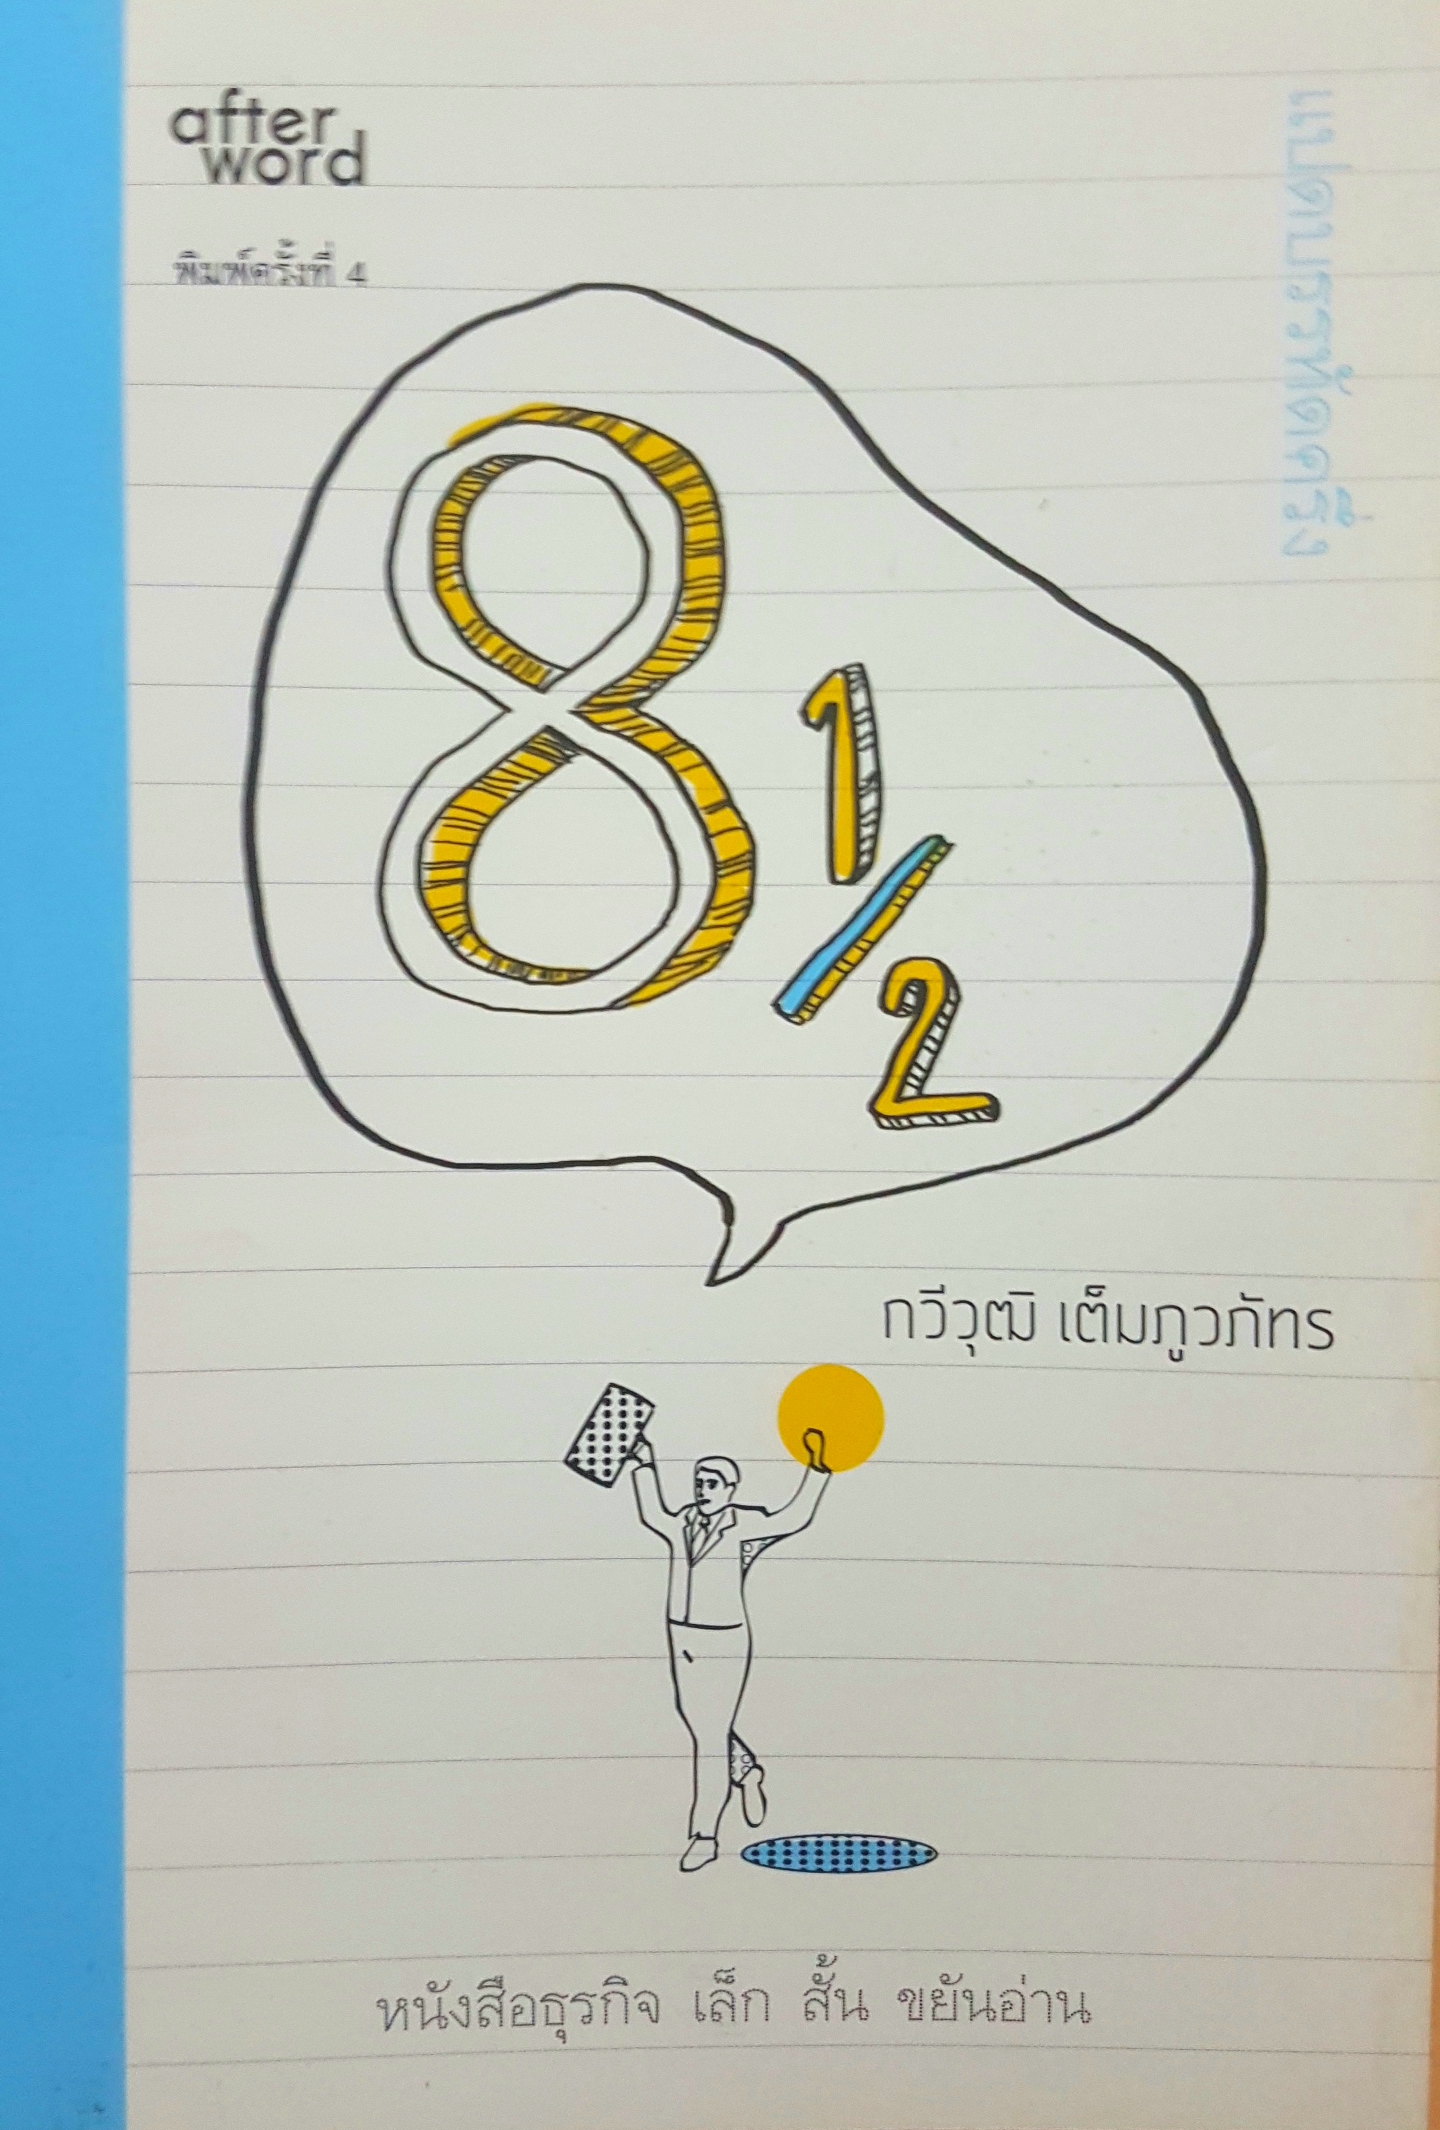 after
word
พิมพ์ครั้งที่ 4
แปดบรรทัดครึ่ง
8 1/2
กวีวุฒิ เต็มภูวภัทร
หนังสือธุรกิจ เล็ก สั้น ขยันอ่าน